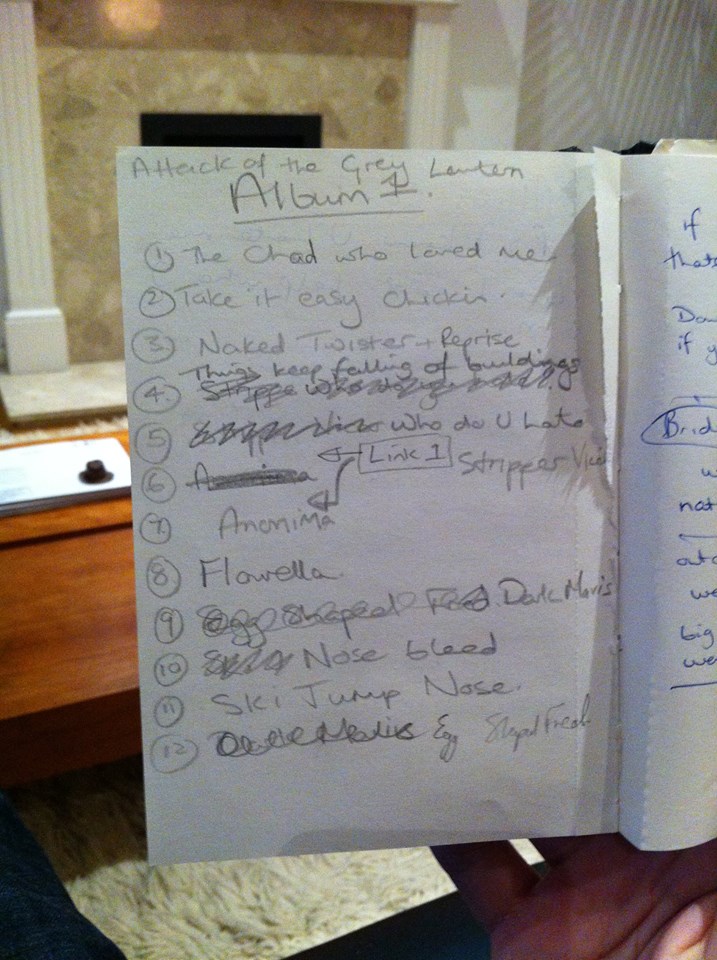 Attack of the Grey Lantern
Album 1.
① The Chad who loved me
② Take it easy chickin.
③ Naked Twister + Reprise
Things keep falling of buildings
④.
⑤ Who do U hate
⑥ Anonima Link 1 Stripper Vica
⑦. Anonima
⑧ Flowella.
⑨ Egg Shaped Fred Dark Mavis
⑩ Nose bleed
⑪ Ski Jump Nose.
⑫ Dark Mavis Egg Shaped Fred
if
thats
Da
if y
Brid
w
not
outo
we
big
we